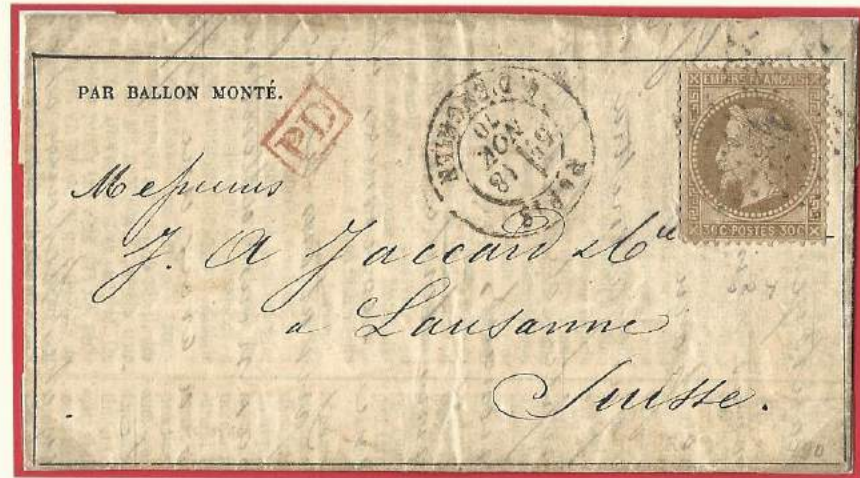 PAR BALLON MONTÉ.
PD
PARIS
R. D'ENGHIEN
5E
18
NOV
70
EMPIRE FRANÇAIS
30C POSTES 30C
Messieurs
J. A Jaccard & Cie
a Lausanne
Suisse.